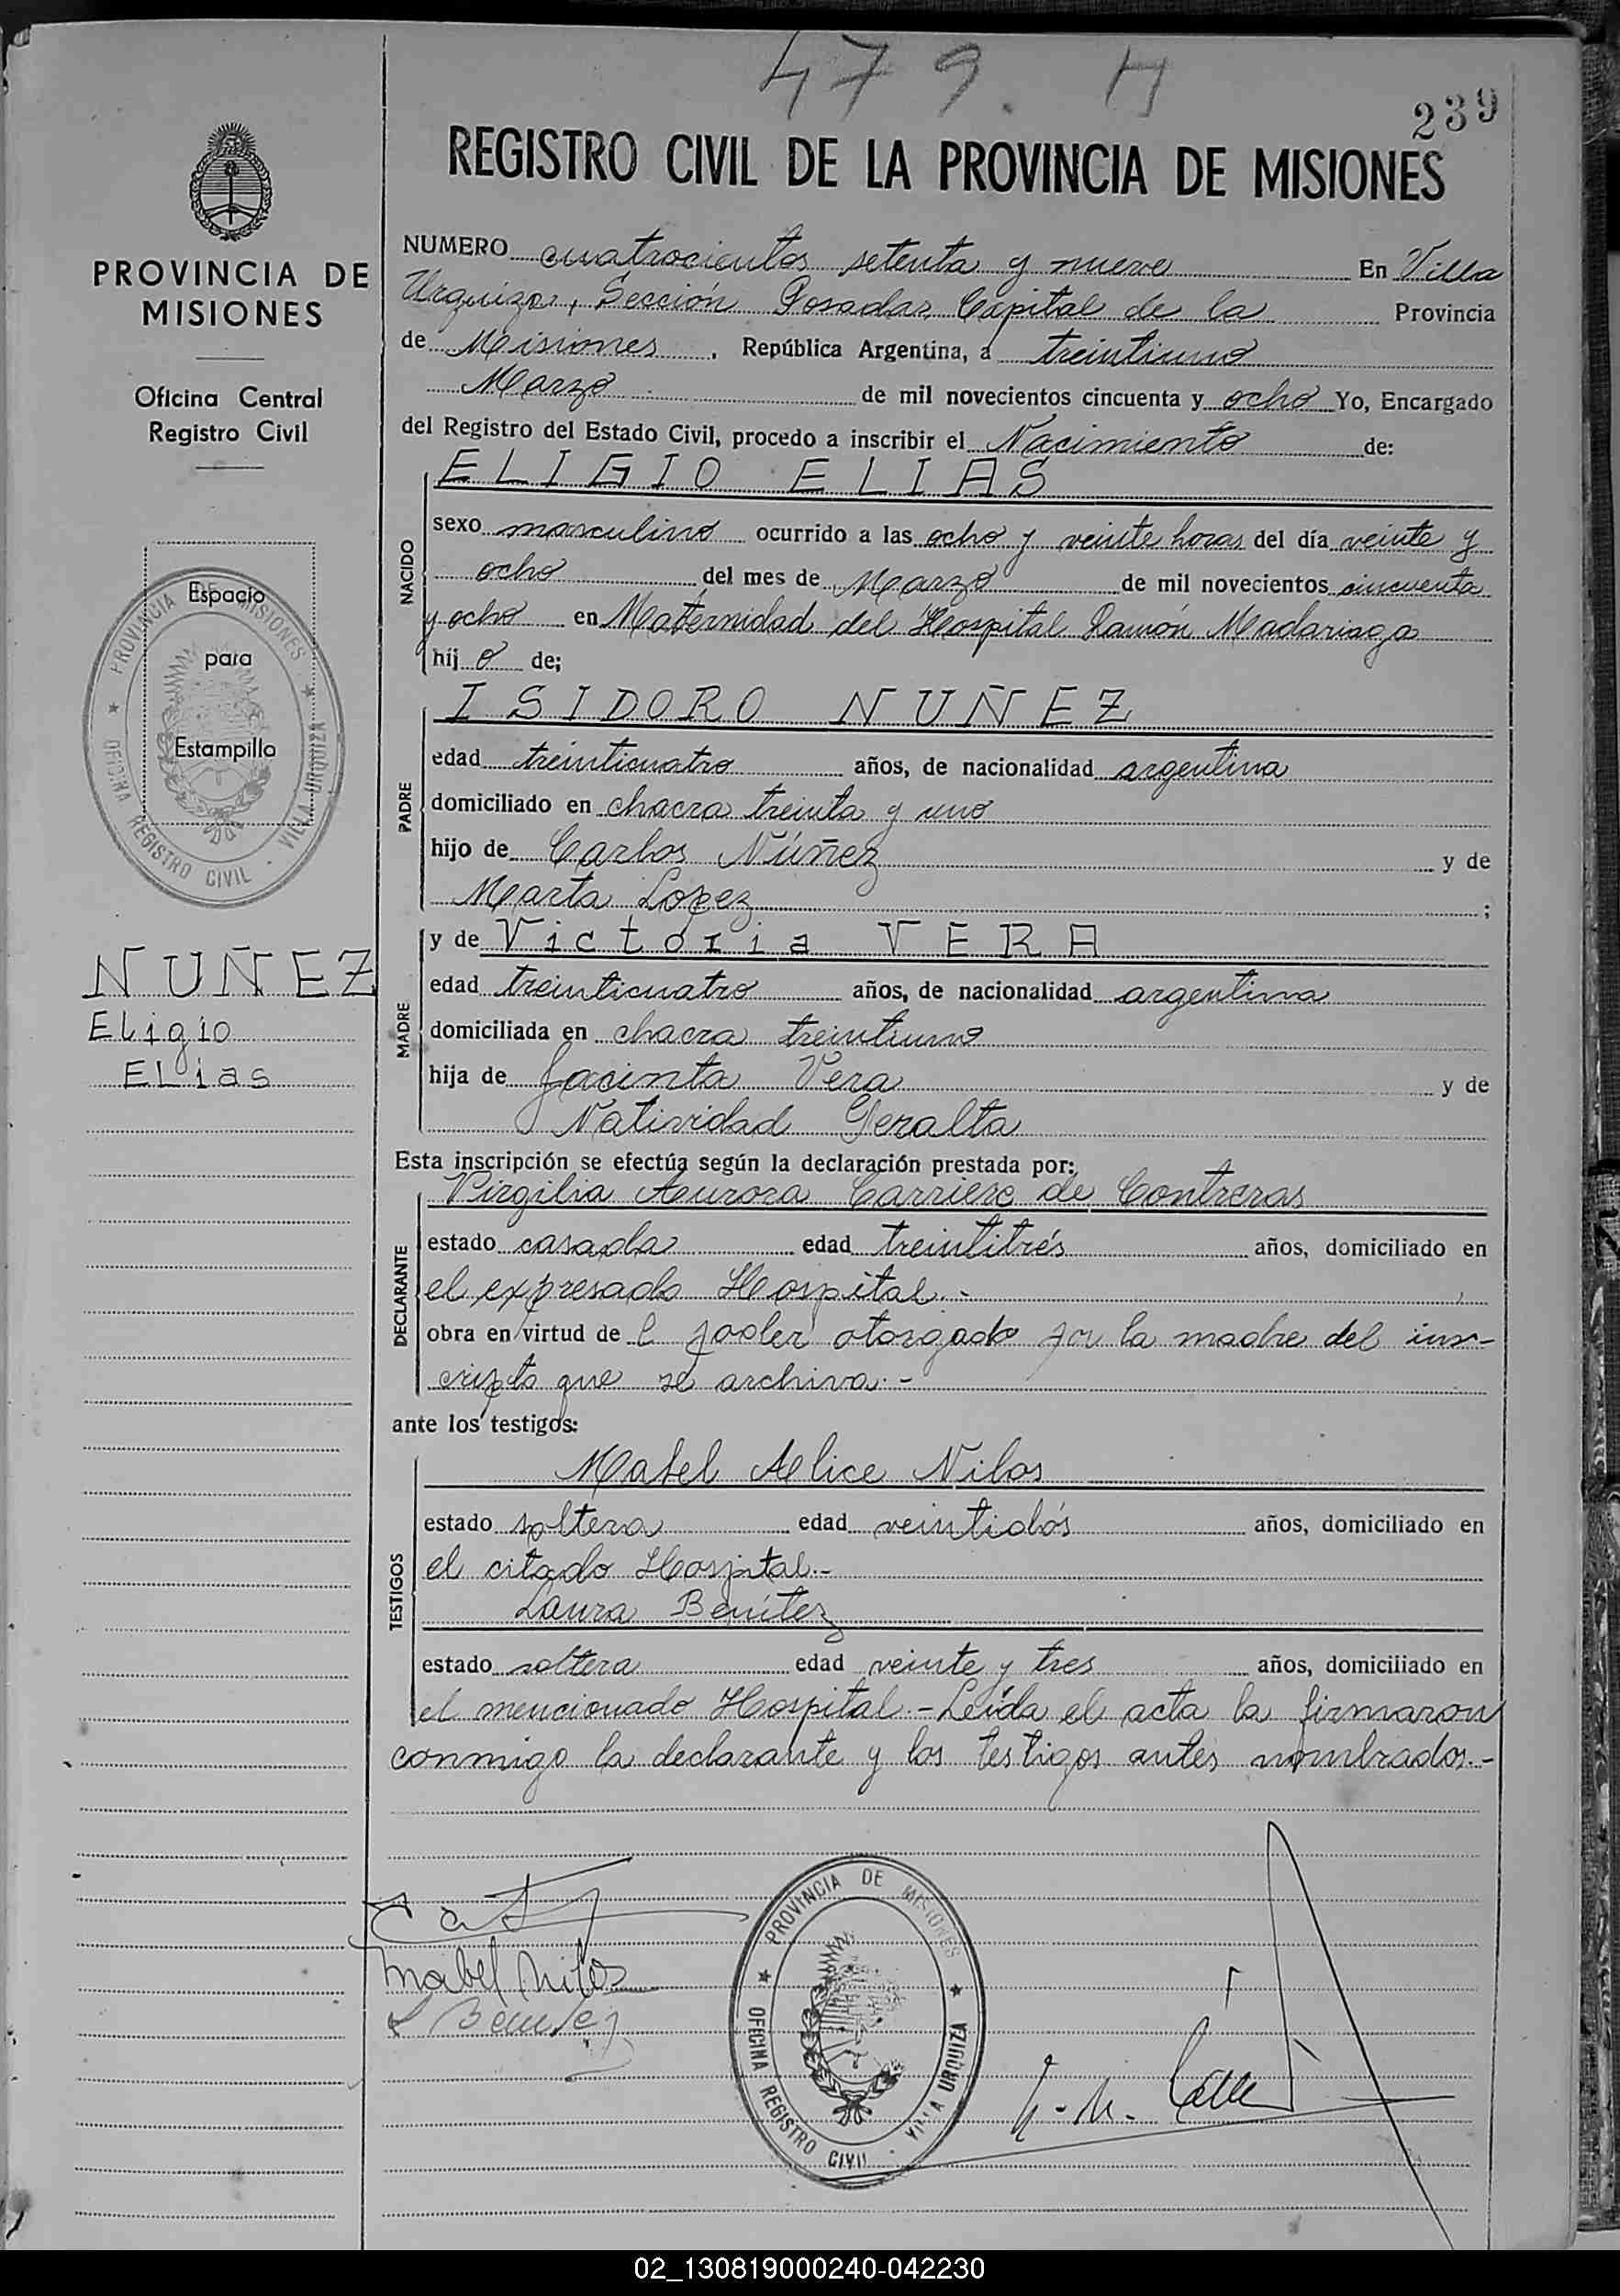 479. H
239
REGISTRO CIVIL DE LA PROVINCIA DE MISIONES
PROVINCIA DE
MISIONES
Oficina Central
Registro Civil
Espacio
para
Estampilla
PROVINCIA DE MISIONES
OFICINA REGISTRO CIVIL - VILLA URQUIZA
NUÑEZ
Eligio
ELías
NUMERO cuatrocientos setenta y nueve En Villa
Urquiza, Sección Posadas Capital de la Provincia
de Misiones, República Argentina, a treintiuno
Marzo de mil novecientos cincuenta y ocho Yo, Encargado
del Registro del Estado Civil, procedo a inscribir el Nacimiento de:
NACIDO
ELIGIO ELIAS
sexo masculino ocurrido a las ocho y veinte horas del día veinte y
ocho del mes de Marzo de mil novecientos cincuenta
y ocho en Maternidad del Hospital Ramón Madariaga
hij o de;
PADRE
ISIDORO NUÑEZ
edad treinticuatro años, de nacionalidad argentina
domiciliado en chacra treinta y uno
hijo de Carlos Núñez y de
Marta Lopez ;
MADRE
y de Victoria VERA
edad treinticuatro años, de nacionalidad argentina
domiciliada en chacra treintiuno
hija de Jacinta Vera y de
Natividad Peralta
Esta inscripción se efectúa según la declaración prestada por:
DECLARANTE
Virgilia Aurora Carriere de Contreras
estado casada edad treintitrés años, domiciliado en
el expresado Hospital.-
obra en virtud de l poder otorgado por la madre del ins-
cripto que se archiva.-
ante los testigos:
TESTIGOS
Mabel Alice Nilos
estado soltera edad veintidós años, domiciliado en
el citado Hospital.-
Laura Benítez
estado soltera edad veinte y tres años, domiciliado en
el mencionado Hospital.- Leída el acta la firmaron
conmigo la declarante y los testigos antes nombrados.-
Mabel Nilos
L Benitez
PROVINCIA DE MISIONES
OFICINA REGISTRO CIVIL - VILLA URQUIZA
02_130819000240-042230